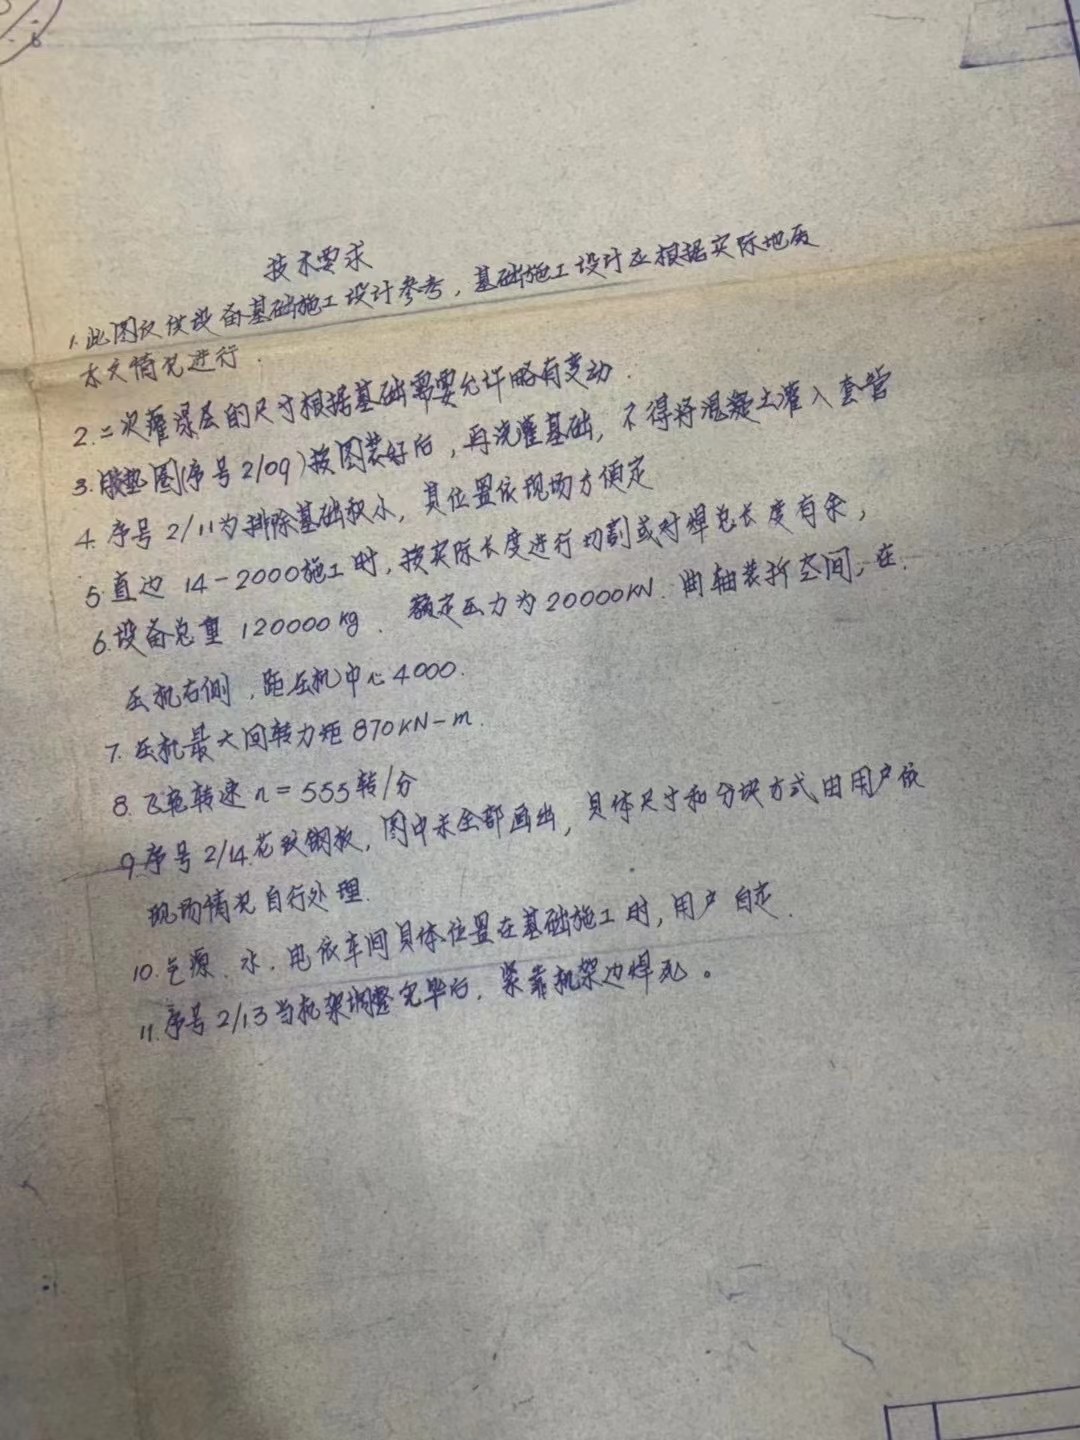 技术要求
1.此图仅供设备基础施工设计参考，基础施工设计应根据实际地质
水文情况进行.
2.二次灌浆层的尺寸根据基础需要允许略有变动.
3.胶垫圈(序号2/09)按图装好后，再浇灌基础，不得将混凝土灌入套管
4.序号2/11为排除基础积水，其位置依现场方便定
5.直边 14-2000施工时,按实际长度进行切割或对焊总长度有余，
6.设备总重120000kg.额定压力为20000KN.曲轴装拆空间,在.
压机右侧,距压机中心4000.
7.压机最大回转力矩870KN-m.
8.飞轮转速n=555转/分
9.序号2/14.花纹钢板，图中未全部画出，具体尺寸和分块方式由用户依
现场情况自行处理.
10.气源.水.电依车间具体位置在基础施工时，用户自定.
11.序号2/13当机架调整完毕后，紧靠机架边焊死。